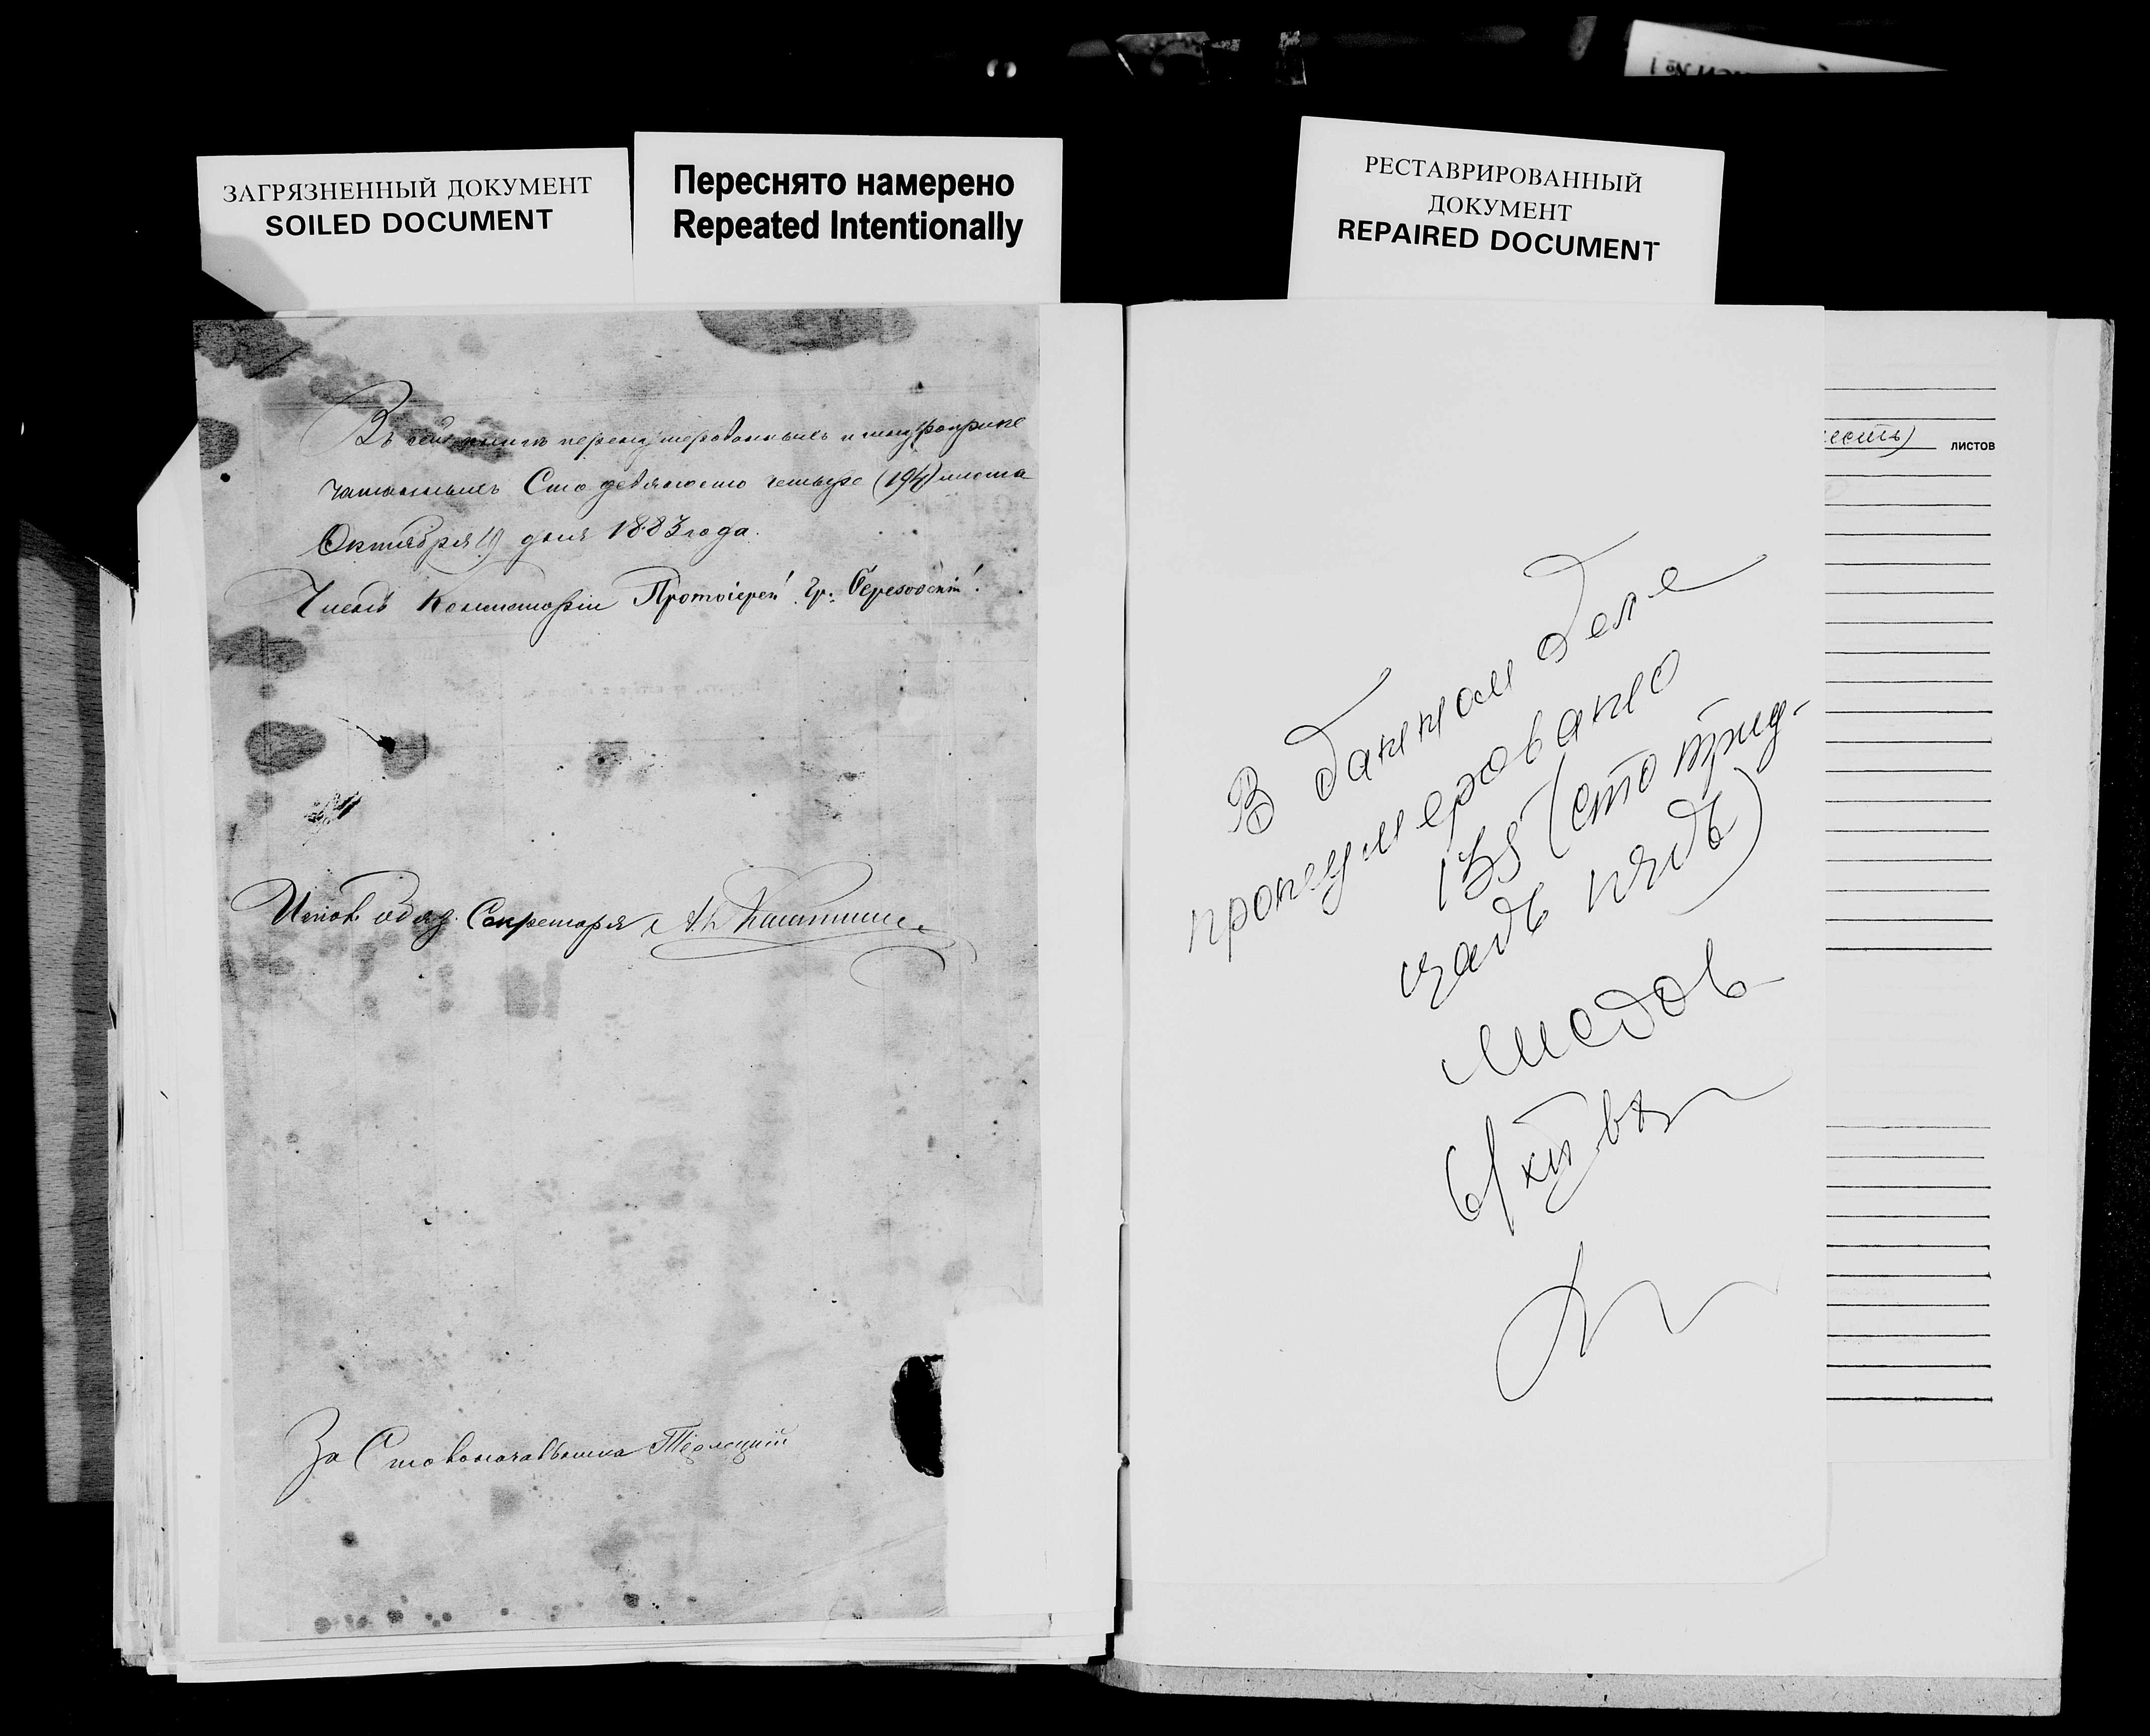 ЗАГРЯЗНЕННЫЙ ДОКУМЕНТ
SOILED DOCUMENT
Переснято намерено
Repeated Intentionally
РЕСТАВРИРОВАННЫЙ
ДОКУМЕНТ
REPAIRED DOCUMENT
Въ сей книгѣ перенумерованныхъ и шнуроприпе
чатанныхъ Сто девяносто четыре (194) листа
Октября 19 дня 1883 года.
Членъ Консисторіи Протоіерей Гр. Березовскій
Испов. обяз. Секретаря
За Столоначальника
В данном деле
пронумеровано
135 (сто трид-
цать пять)
листов
листов